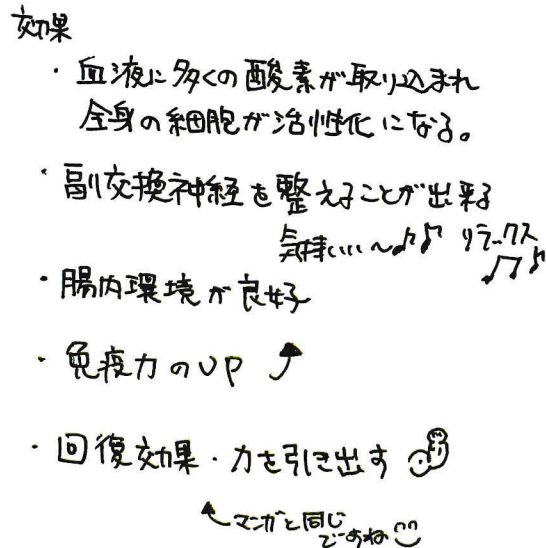 効果
・血液に多くの酸素が取り込まれ
全身の細胞が活性化になる。
・副交換神経を整えることが出来る
気持いい〜♪♪ リラックス♪♪
・腸内環境が良好
・免疫力のUP ↑
・回復効果・力を引き出す
←マンガと同じ
ですね